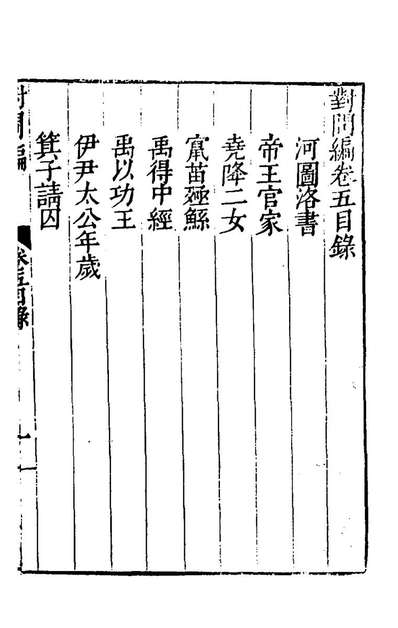 對問編卷五目錄
河圖洛書
帝王官家
堯降二女
竄苗殛鯀
禹得中經
禹以功王
伊尹太公年歲
箕子請囚
對問編
卷五目錄
一